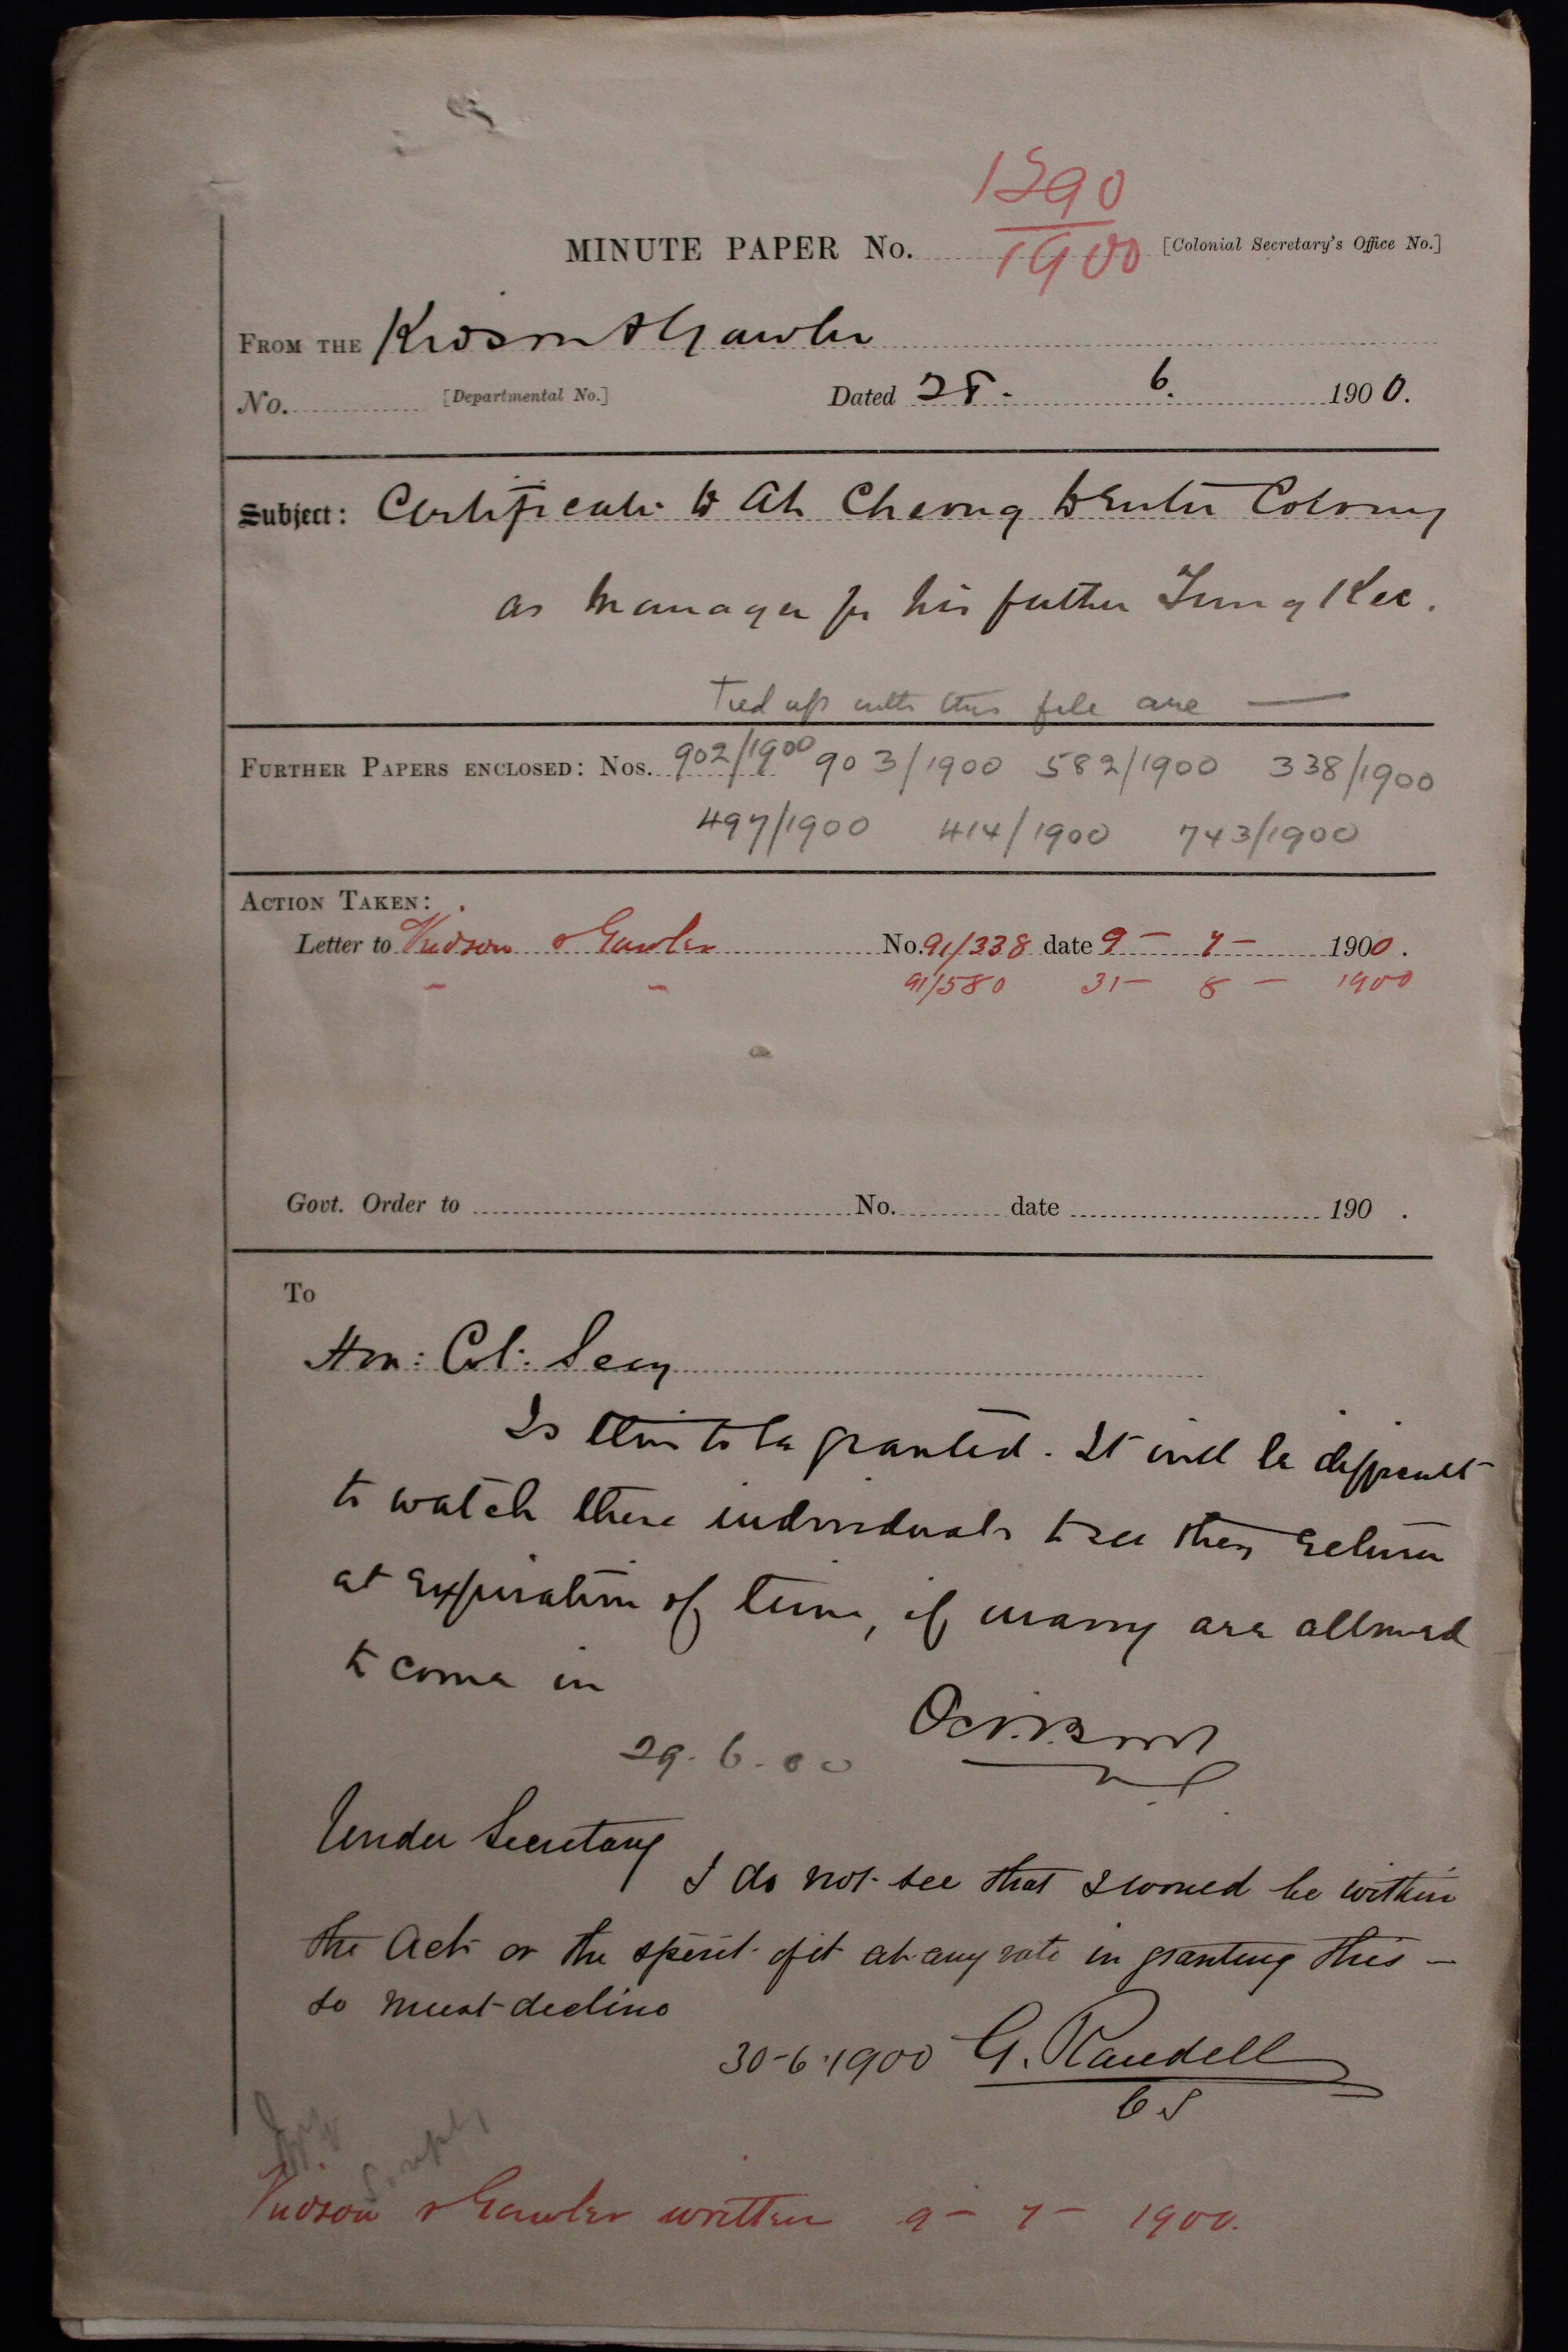 1590
1900
MINUTE PAPER No. [Colonial Secretary's Office No.]
FROM THE Kidson & Gawler
No. [Departmental No.] Dated 28. 6. 1900.
Subject: Certificate to Ah Cheong to Enter Colony
as Manager for his father Tung Kee.
Tied up with this file are —
FURTHER PAPERS ENCLOSED: Nos. 902/1900 903/1900 582/1900 338/1900
497/1900 414/1900 743/1900
ACTION TAKEN:
Letter to Kidson & Gawler No. 91/338 date 9 - 7 - 1900.
" " 91/580 31 - 8 - 1900
Govt. Order to No. date 190 .
To
Hon: Col: Secy
Is this to be granted. It will be difficult
to watch these individuals to see they return
at Expiration of time, if many are allowed
to come in
29.6.00
Under Secretary
I do not see that I would be within
the Act or the spirit of it at any rate in granting this —
so must decline
30-6-1900 G. Randell
CS
Kidson & Gawler written 9 - 7 - 1900.